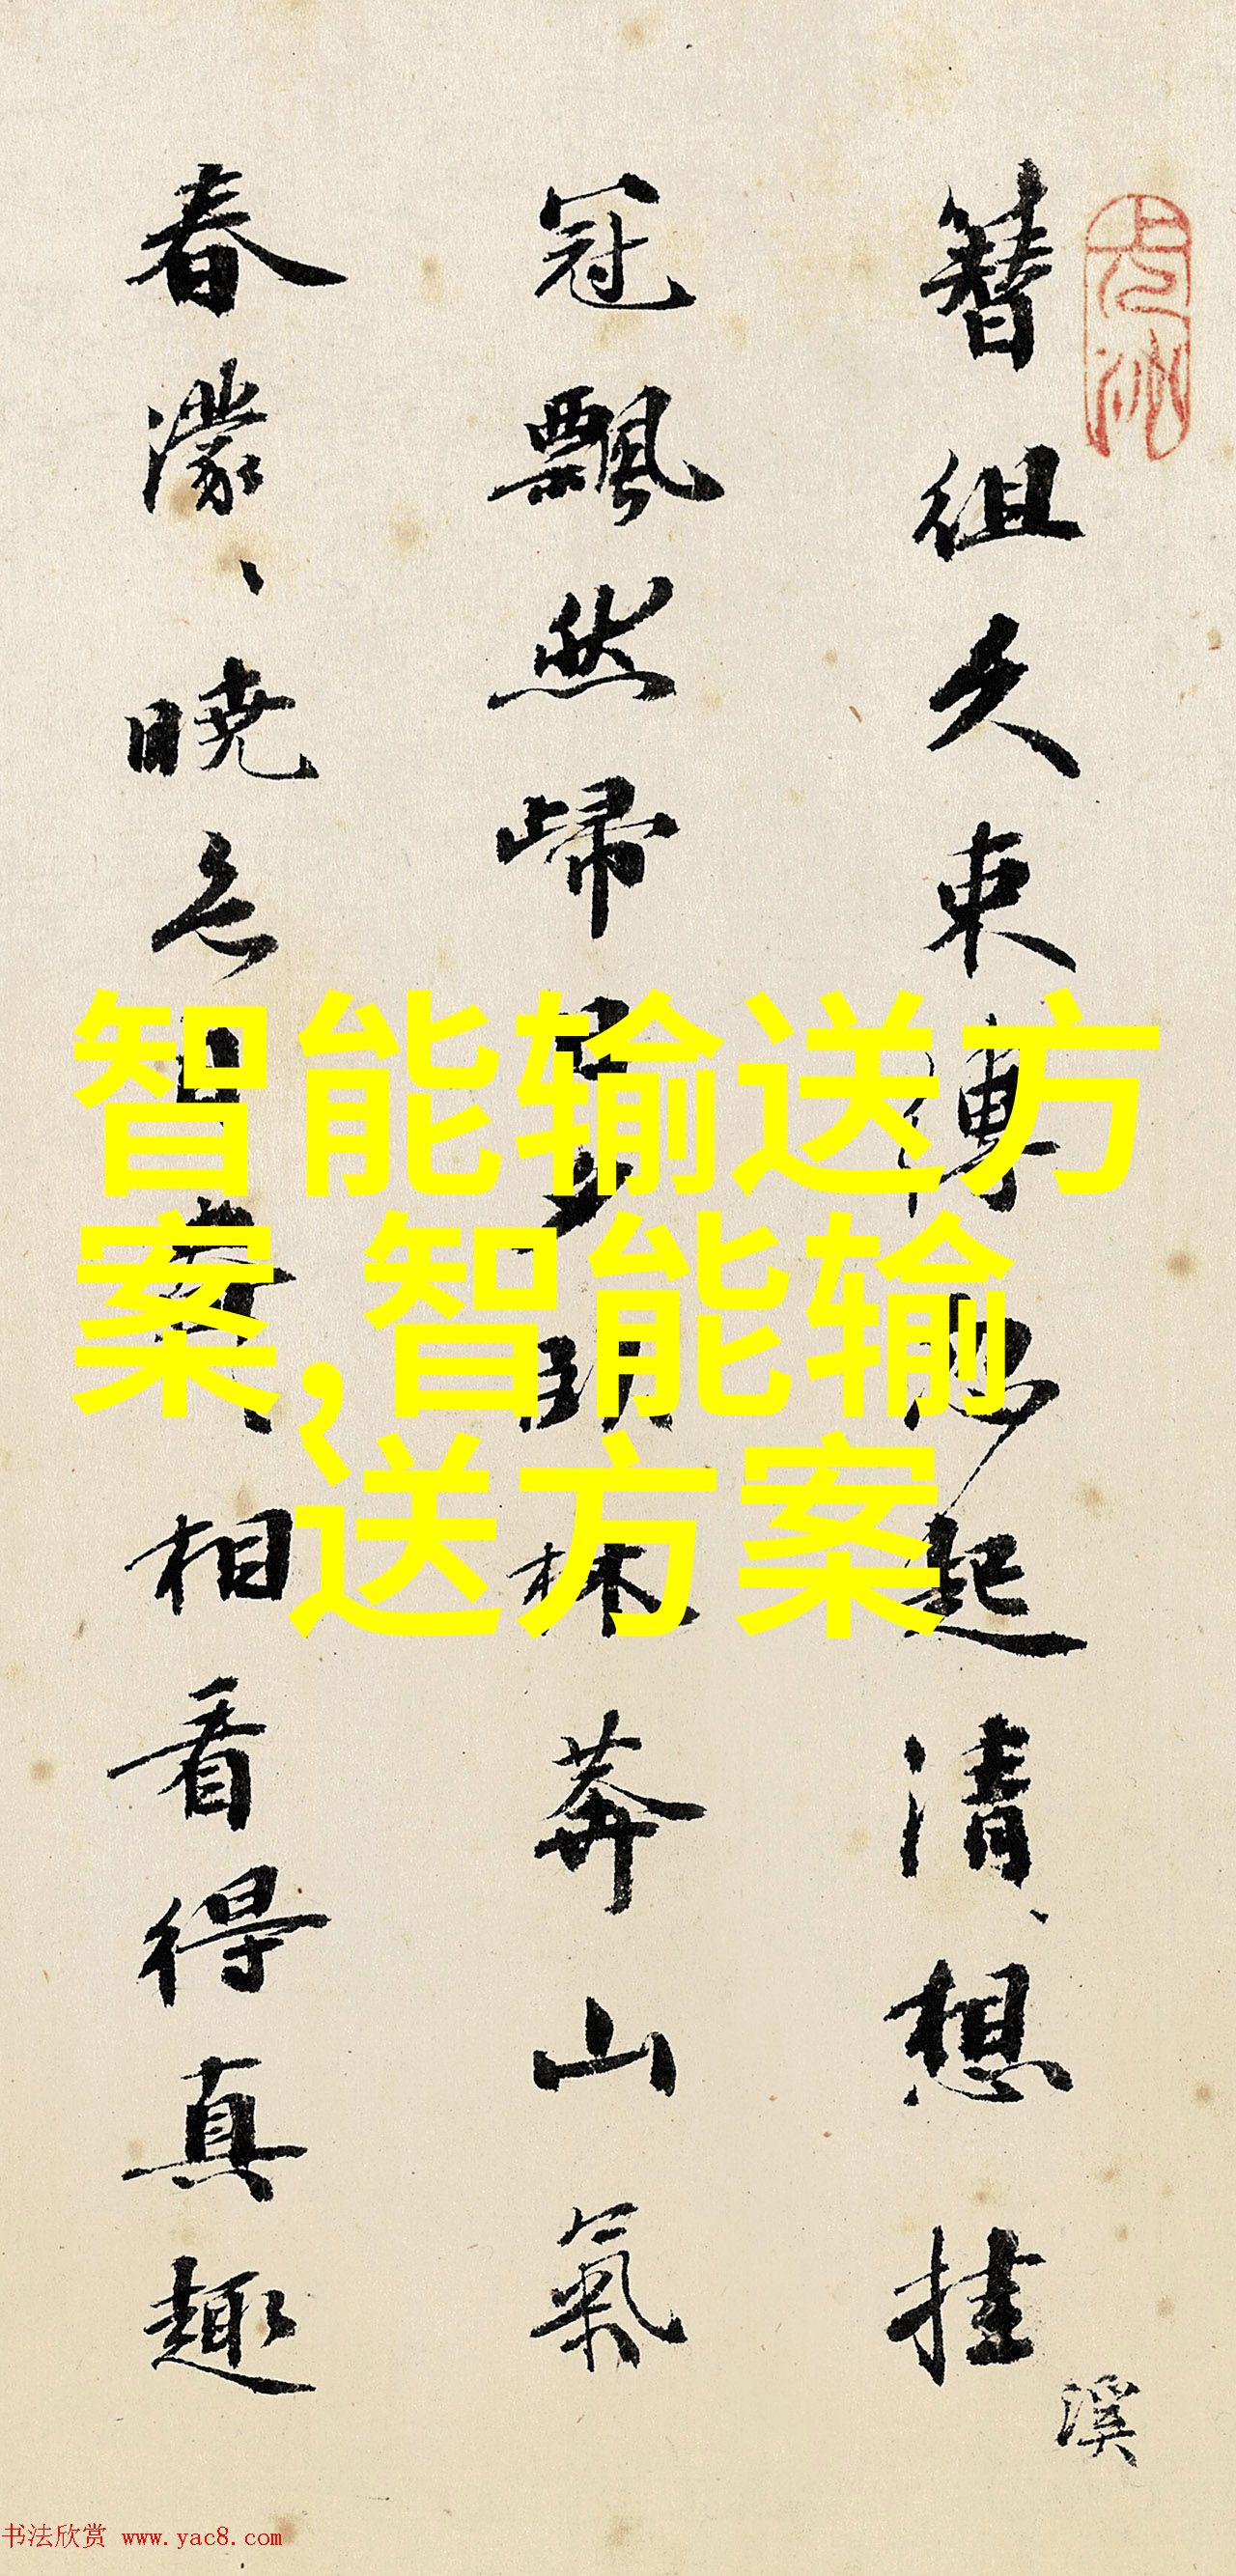 簪组久束缚忽起清想挂
溪
冠飘然归
林莽山气
春濛、晓
相看得真趣
智能输送方
案,智能输
送方案
书法欣赏 www.yac8.com